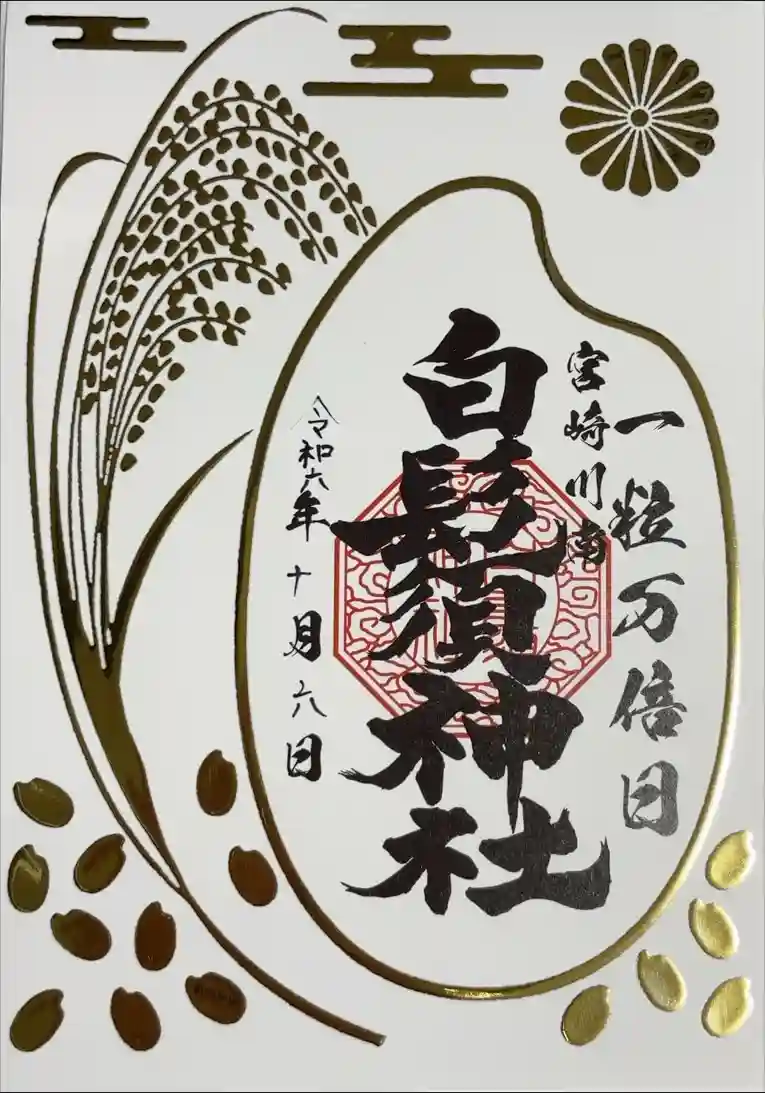 一粒万倍日
宮崎川南
白鬚須神社
令和六年十月六日